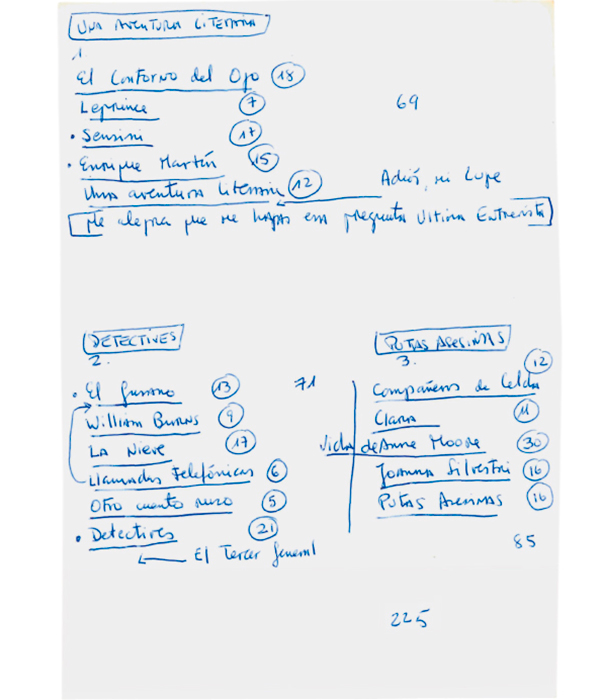 UNA AVENTURA LITERARIA
1.
El Contorno del Ojo 18
Leprince 7
69
• Sensini 17
• Enrique Martín 15
Una aventura literaria 12
Adiós, mi Lupe
Me alegra que me hagas esa pregunta Ultima Entrevista
DETECTIVES
2.
• El Gusano 13
71
William Burns 9
La Nieve 17
Llamadas Telefónicas 6
Otro cuento ruso 5
• Detectives 21
El Tercer General
PUTAS ASESINAS
3.
Compañeros de Celda 12
Clara 11
Vida de Anne Moore 30
Joanna Silvestri 16
Putas Asesinas 16
85
225